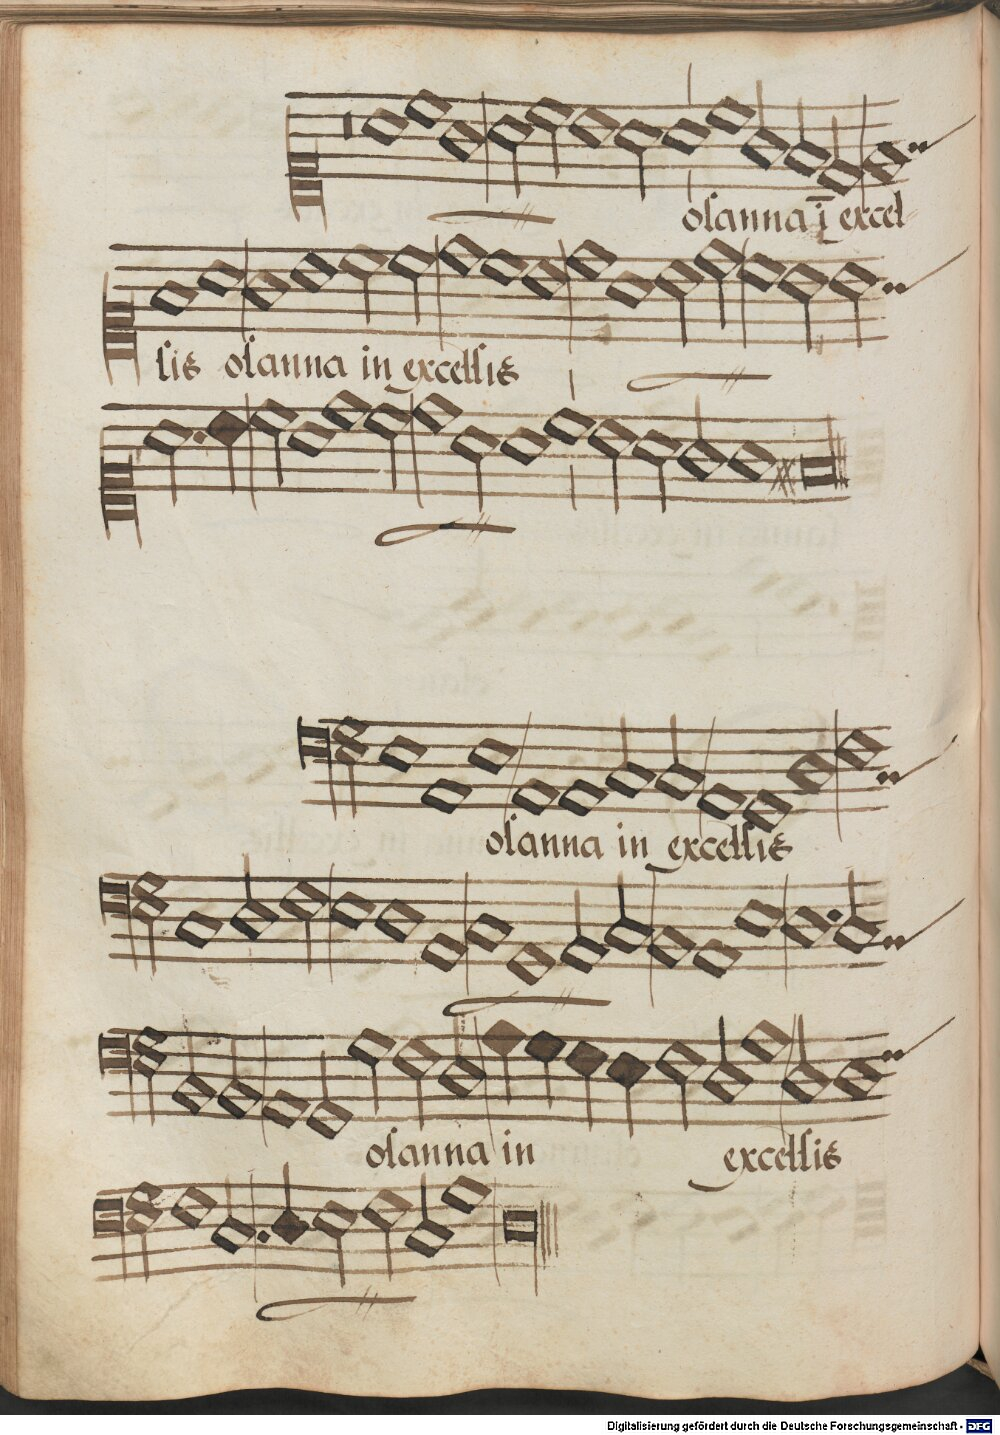 osanna ī excel
sis osanna in excelsis
osanna in excelsis
osanna in excelsis
Digitalisierung gefördert durch die Deutsche Forschungsgemeinschaft - DFG